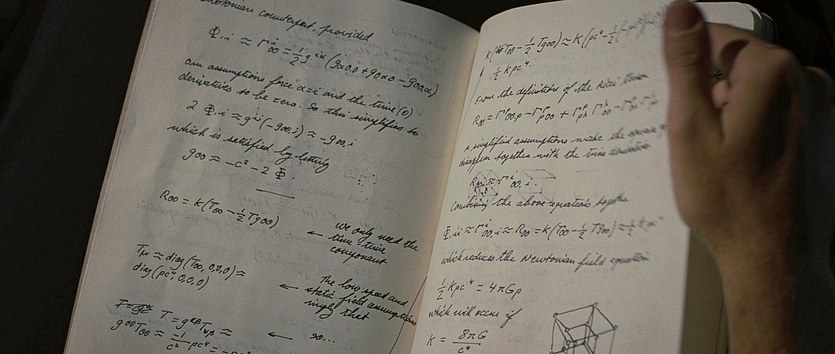 Newtonian counterpart, provided
Φ,i ≈ Γⁱ₀₀ = ½ g^iα (gα0,0 + g0α,0 − g00,α)
our assumptions force α = i and the time (0)
derivatives to be zero. So this simplifies to
2 Φ,i ≈ g^ij (−g00,i) ≈ −g00,i
which is satisfied by letting
g00 ≈ −c² − 2 Φ.
R00 = K (T00 − ½ T g00)
← We only need the
time-time
component
Tμν ≈ diag (T00, 0,0,0) ≈
diag (ρc⁴, 0,0,0)
← The low speed and
static field assumptions
imply that
T = g^αβ Tαβ ≈
← so...
g⁰⁰ T00 ≈ −1/c² ρc⁴ =
K (T00 − ½ T g00) ≈ K (ρc⁴ − ½
≈ ½ K ρc⁴.
From the definition of the
R00 = Γ^ρ₀₀,ρ − Γ^ρ + Γ^ρ
simplified assumptions make the
disappear together with the time derivative
R00 ≈ Γⁱ₀₀,i.
Combining the above equations together
Φ,ii ≈ Γⁱ₀₀,i ≈ R00 = K (T00 − ½ T g00) ≈ ½ K ρc⁴
which reduces the Newtonian field equation
½ K ρc⁴ = 4πGρ
which will occur if
K = 8πG/c⁴